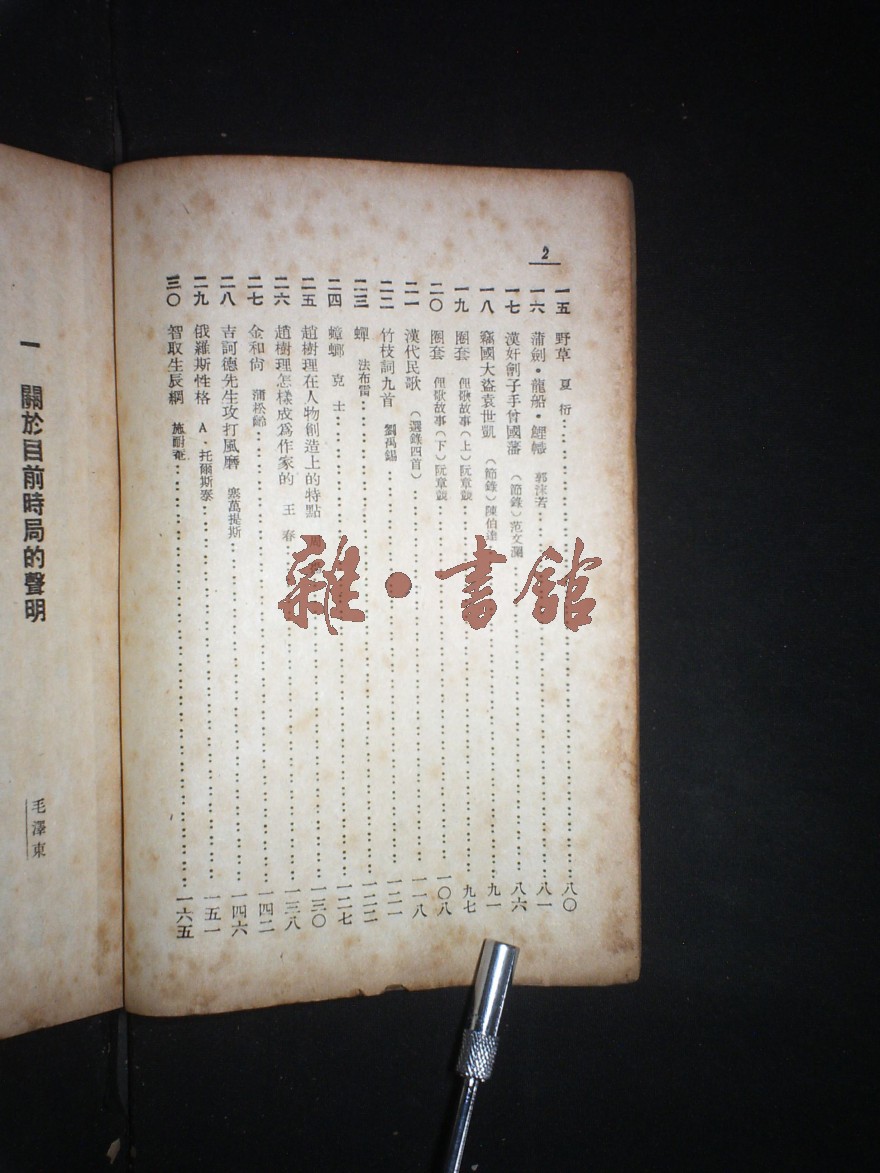 2
一五 野草 夏衍 八〇
一六 蒲劍·龍船·鯉幟 郭沫若 八一
一七 漢奸劊子手曾國藩 (節錄) 范文瀾 八六
一八 竊國大盜袁世凱 (節錄) 陳伯達 九一
一九 圈套 俚歌故事(上) 阮章競 九七
二〇 圈套 俚歌故事(下) 阮章競 一〇八
二一 漢代民歌 (選錄四首) 一一八
二二 竹枝詞九首 劉禹錫 一二一
二三 蟬 法布雷 一二二
二四 蟑螂 克士 一二七
二五 趙樹理在人物創造上的特點 一三〇
二六 趙樹理怎樣成爲作家的 王春 一三八
二七 金和尙 蒲松齡 一四二
二八 吉訶德先生攻打風磨 塞萬提斯 一四六
二九 俄羅斯性格 A·托爾斯泰 一五一
三〇 智取生辰綱 施耐菴 一六五
一 關於目前時局的聲明
毛澤東
雜·書舘